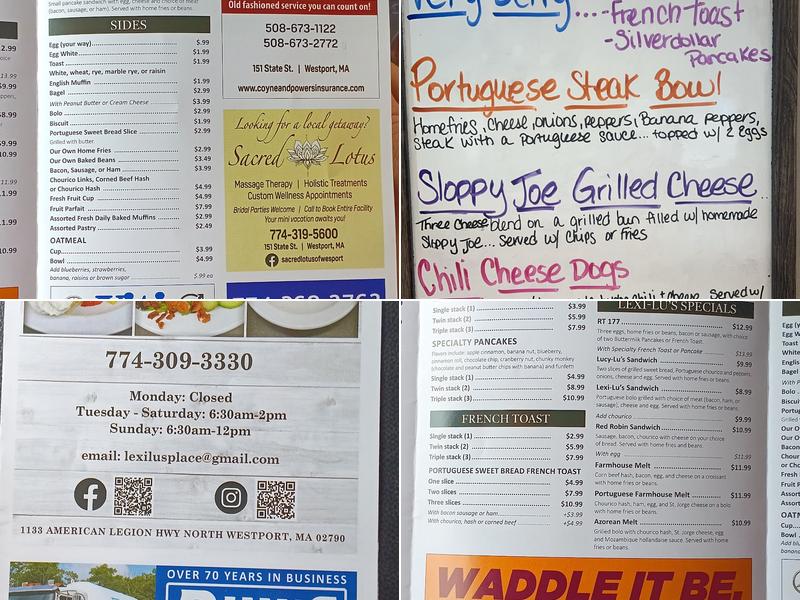 Small pancake sandwich with egg, cheese and choice of meat
(bacon, sausage, or ham). Served with home fries.
SIDES
Egg (your way) $.99
Egg White $1.99
Toast $1.99
White, wheat, rye, marble rye, or raisin
English Muffin $1.99
Bagel $2.99
With Peanut Butter or Cream Cheese $3.99
Bolo $2.99
Biscuit $1.99
Portuguese Sweet Bread Slice $2.99
Grilled with butter.
Our Own Home Fries $2.99
Our Own Baked Beans $3.49
Bacon, Sausage, or Ham $3.99
Chourico Links, Corned Beef Hash
or Chourico Hash $4.99
Fresh Fruit Cup $4.99
Fruit Parfait $7.99
Assorted Fresh Daily Baked Muffins $2.99
Assorted Pastry $2.49
OATMEAL
Cup $3.99
Bowl $4.99
Add blueberries, strawberries,
banana, raisins or brown sugar $.99 ea
Old fashioned service you can count on!
508-673-1122
508-673-2772
151 State St. | Westport, MA
www.coyneandpowersinsurance.com
Looking for a local getaway?
Sacred Lotus
Massage Therapy | Holistic Treatments
Custom Wellness Appointments
Bridal Parties Welcome | Call to Book Entire Facility
Your mini vacation awaits you!
774-319-5600
151 State St. | Westport, MA
sacredlotusofwesport
Very Berry...-French Toast
-Silverdollar
Pancakes
Portuguese Steak Bowl
Homefries, Cheese, onions, peppers, Banana peppers,
Steak with a Portuguese sauce... topped w/ 2 eggs
Sloppy Joe Grilled Cheese
Three Cheese blend on a grilled bun filled w/ homemade
Sloppy Joe... Served w/ Chips or Fries
Chili Cheese Dogs
Served w/
774-309-3330
Monday: Closed
Tuesday - Saturday: 6:30am-2pm
Sunday: 6:30am-12pm
email: lexilusplace@gmail.com
1133 AMERICAN LEGION HWY NORTH WESTPORT, MA 02790
OVER 70 YEARS IN BUSINESS
Single stack (1) $3.99
Twin stack (2) $5.99
Triple stack (3) $7.99
SPECIALTY PANCAKES
Flavors include: apple cinnamon, banana nut, blueberry,
cinnamon roll, chocolate chip, cranberry nut, chunky monkey
(chocolate and peanut butter chips with banana) and funfetti
Single stack (1) $4.99
Twin stack (2) $8.99
Triple stack (3) $10.99
FRENCH TOAST
Single stack (1) $2.99
Twin stack (2) $5.99
Triple stack (3) $7.99
PORTUGUESE SWEET BREAD FRENCH TOAST
One slice $4.99
Two slices $7.99
Three slices $10.99
With bacon sausage or ham +$3.99
With chourico, hash or corned beef +$4.99
LEXI-LU'S SPECIALS
RT 177 $12.99
Three eggs, home fries or beans, bacon or sausage, with choice
of two Buttermilk Pancakes or French Toast.
With Specialty French Toast or Pancake $13.99
Lucy-Lu's Sandwich $9.99
Two slices of grilled sweet bread, Portuguese chourico and peppers,
onions, cheese and egg. Served with home fries or beans.
Lexi-Lu's Sandwich $8.99
Portuguese bolo grilled with choice of meat (bacon, ham, or
sausage), cheese and egg. Served with home fries or beans.
Add chourico $9.99
Red Robin Sandwich $10.99
Sausage, bacon, chourico with cheese on your choice
of bread. Served with home fries or beans.
With egg $11.99
Farmhouse Melt $11.99
Corn beef hash, bacon, egg, and cheese on a croissant
with home fries or beans.
Portuguese Farmhouse Melt $11.99
Chourico hash, ham, egg, and St. Jorge cheese on a bolo
with home fries or beans.
Azorean Melt $10.99
Grilled bolo with chourico hash, St. Jorge cheese, egg
and Mozambique hollandaise sauce. Served with home
fries or beans.
WADDLE IT BE,